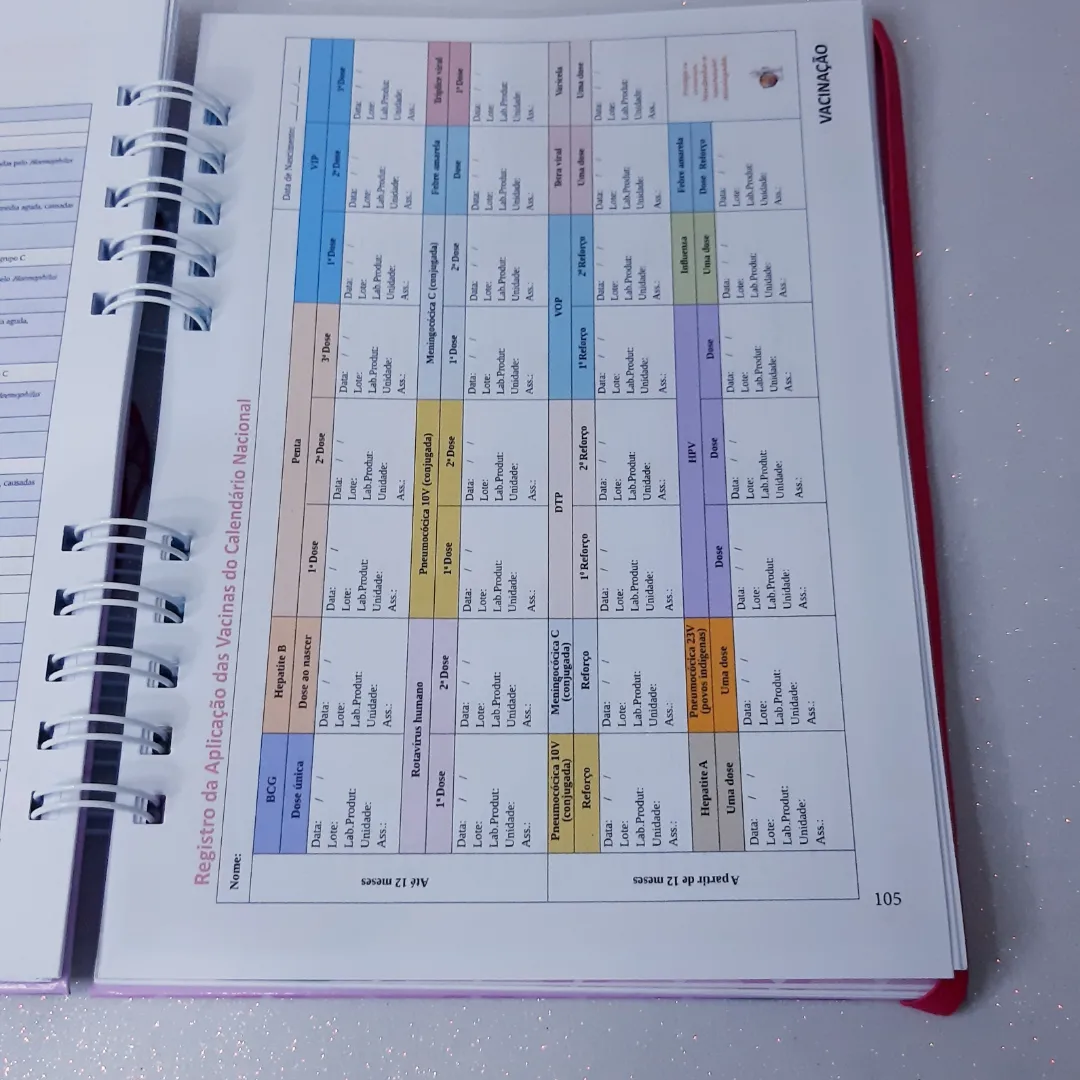 aguda, causadas
grupo C
Haemophilus
a aguda,
C
Haemophilus
, causadas
Registro da Aplicação das Vacinas do Calendário Nacional
Nome: Data de Nascimento: ___/___/___
Até 12 meses
BCG Hepatite B Penta VIP
Dose única Dose ao nascer 1ª Dose 2ª Dose 3ª Dose 1ª Dose 2ª Dose 3ª Dose
Data: / / Data: / / Data: / / Data: / / Data: / / Data: / / Data: / / Data: / /
Lote: Lote: Lote: Lote: Lote: Lote: Lote: Lote:
Lab.Produt: Lab.Produt: Lab.Produt: Lab.Produt: Lab.Produt: Lab.Produt: Lab.Produt: Lab.Produt:
Unidade: Unidade: Unidade: Unidade: Unidade: Unidade: Unidade: Unidade:
Ass.: Ass.: Ass.: Ass.: Ass.: Ass.: Ass.: Ass.:
Rotavírus humano Pneumocócica 10V (conjugada) Meningocócica C (conjugada) Febre amarela Tríplice viral
1ª Dose 2ª Dose 1ª Dose 2ª Dose 1ª Dose 2ª Dose Dose 1ª Dose
Data: / / Data: / / Data: / / Data: / / Data: / / Data: / / Data: / / Data: / /
Lote: Lote: Lote: Lote: Lote: Lote: Lote: Lote:
Lab.Produt: Lab.Produt: Lab.Produt: Lab.Produt: Lab.Produt: Lab.Produt: Lab.Produt: Lab.Produt:
Unidade: Unidade: Unidade: Unidade: Unidade: Unidade: Unidade: Unidade:
Ass.: Ass.: Ass.: Ass.: Ass.: Ass.: Ass.: Ass.:
A partir de 12 meses
Pneumocócica 10V Meningocócica C DTP VOP Tetra viral Varicela
(conjugada) (conjugada)
Reforço Reforço 1º Reforço 2º Reforço 1º Reforço 2º Reforço Uma dose Uma dose
Data: / / Data: / / Data: / / Data: / / Data: / / Data: / / Data: / / Data: / /
Lote: Lote: Lote: Lote: Lote: Lote: Lote: Lote:
Lab.Produt: Lab.Produt: Lab.Produt: Lab.Produt: Lab.Produt: Lab.Produt: Lab.Produt: Lab.Produt:
Unidade: Unidade: Unidade: Unidade: Unidade: Unidade: Unidade: Unidade:
Ass.: Ass.: Ass.: Ass.: Ass.: Ass.: Ass.: Ass.:
Hepatite A Pneumocócica 23V HPV Influenza Febre amarela
(povos indígenas)
Uma dose Uma dose Dose Dose Dose Uma dose Dose Reforço
Data: / / Data: / / Data: / / Data: / / Data: / / Data: / / Data: / /
Lote: Lote: Lote: Lote: Lote: Lote: Lote:
Lab.Produt: Lab.Produt: Lab.Produt: Lab.Produt: Lab.Produt: Lab.Produt: Lab.Produt:
Unidade: Unidade: Unidade: Unidade: Unidade: Unidade: Unidade:
Ass.: Ass.: Ass.: Ass.: Ass.: Ass.: Ass.:
105
VACINAÇÃO